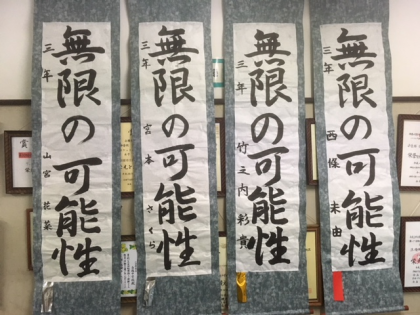 無限の可能性
三年 西條 未由
無限の可能性
三年 竹之内 彩貴
無限の可能性
三年 宮本 さくら
無限の可能性
三年 山宮 花菜
賞